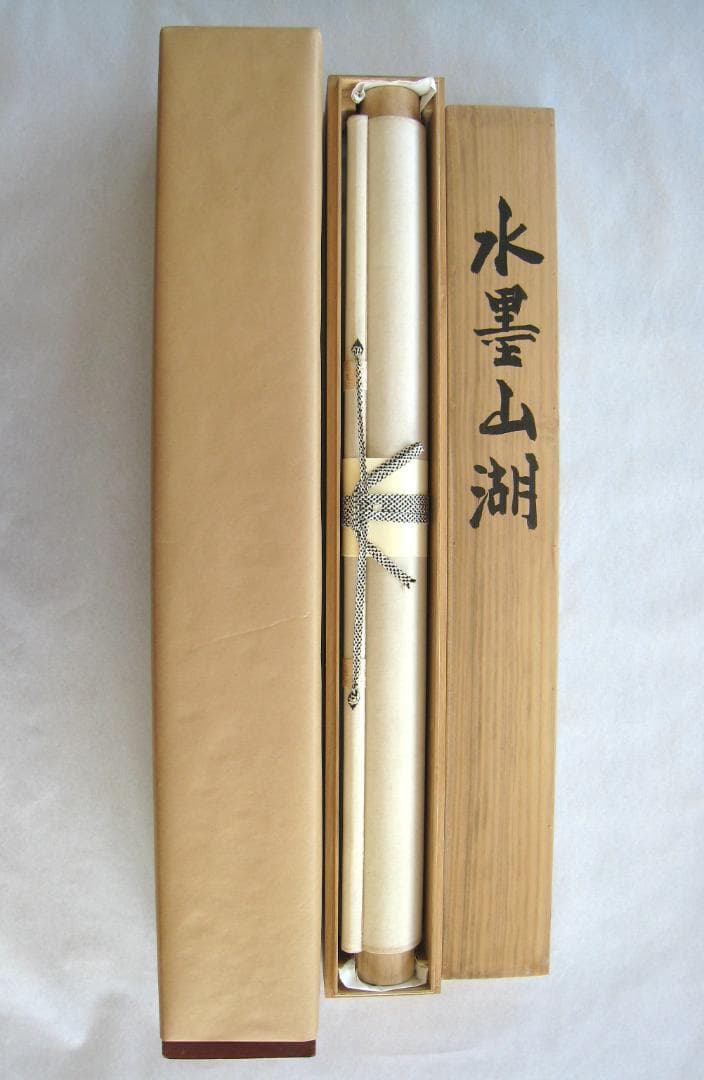 水墨山湖